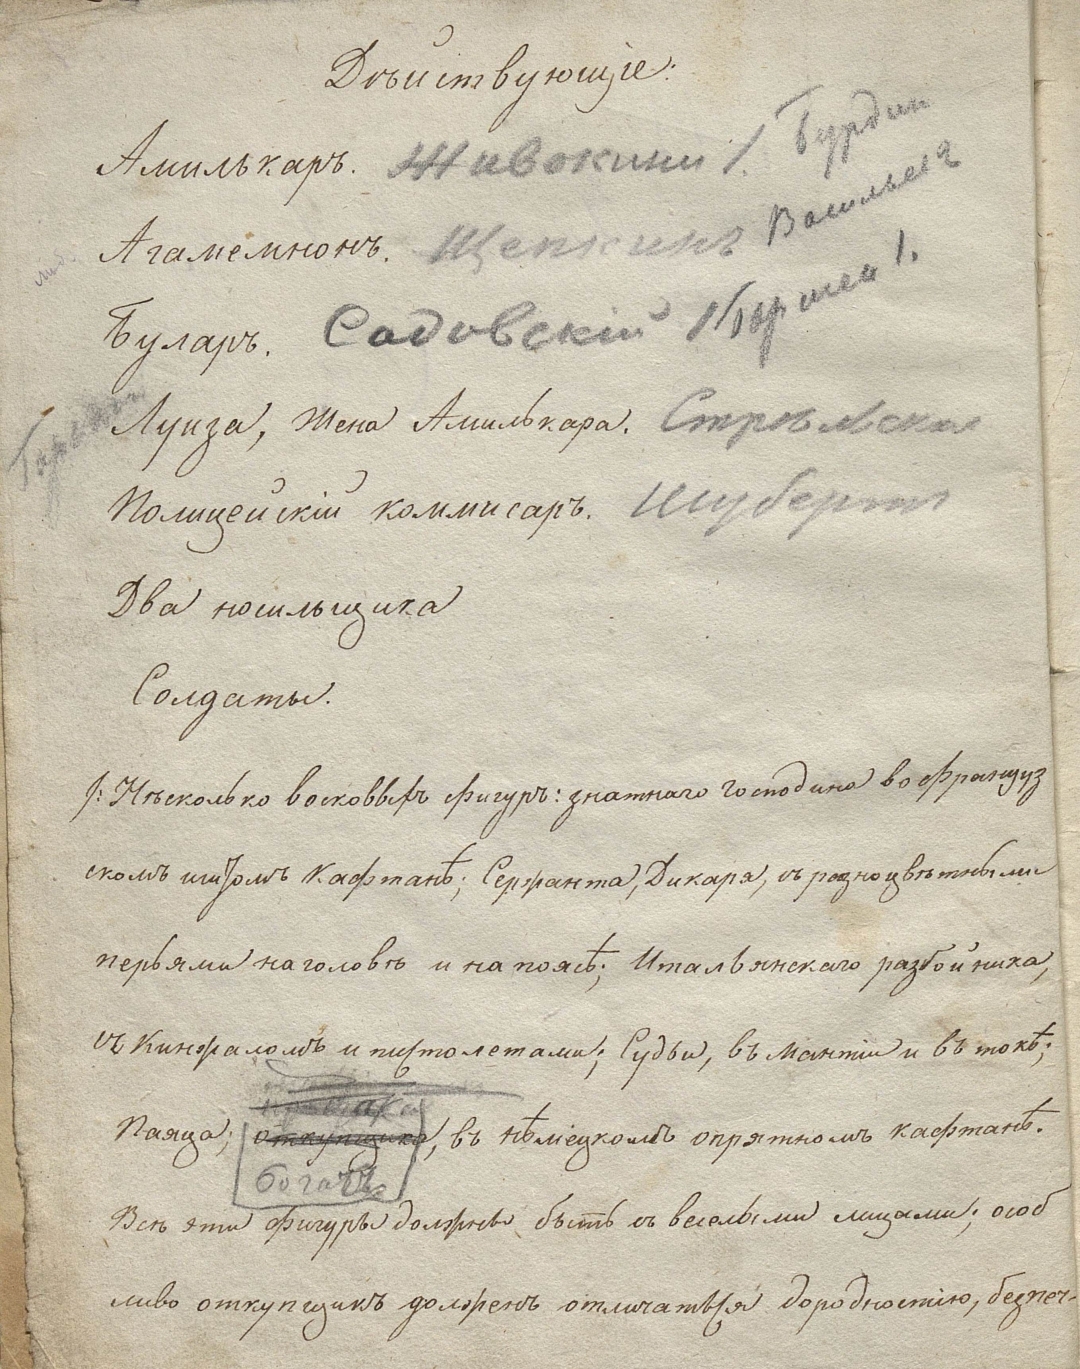 Дѣйствующіе:
Амилькаръ. Живокини 1. Бурдин
Агамемнонъ. Щепкинъ Васильевъ
Буларъ. Садовскій
Луиза, жена Амилькара. Стрѣльская
Полицейскій коммисаръ. Шубертъ
Два носильщика
Солдаты.
/: Нѣсколько восковыхъ фигуръ: знатнаго господина во француз
скомъ шитомъ кафтанѣ; Сержанта, Дикаря, съ разноцвѣтными
перьями на головѣ и на поясѣ; Итальянскаго разбойника,
съ кинжаломъ и пистолетами; Судьи, въ мантіи и въ токѣ;
Паяца; откупщика, въ нѣмецкомъ опрятномъ кафтанѣ.
богачъ
Всѣ эти фигуры должны быть съ веселыми лицами; особ
ливо откупщикъ долженъ отличаться дородностію, безпеч-